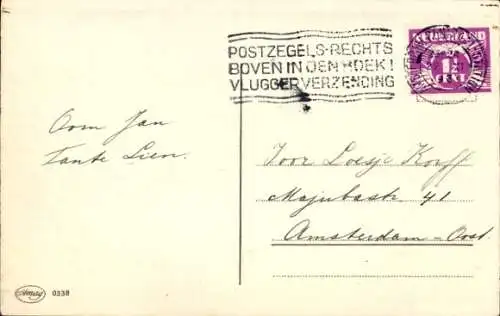 POSTZEGELS RECHTS
BOVEN IN DEN HOEK!
VLUGGER VERZENDING
NEDERLAND
1½
CENT
Oom Jan
Tante Lien.
Voor Loesje Korff
Majubastr 41
Amsterdam-Oost.
Amag 0338